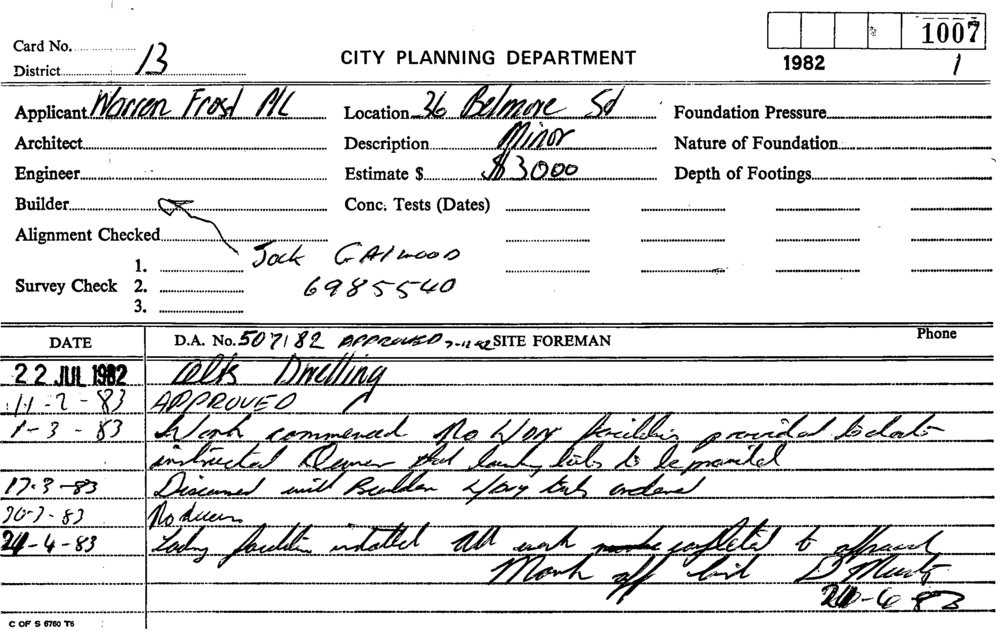 1007
Card No.
CITY PLANNING DEPARTMENT
District 13
1982 1
Applicant Warren Frost P/L Location 36 Belmore Sd Foundation Pressure
Architect Description Minor Nature of Foundation
Engineer Estimate $ $3000 Depth of Footings
Builder Conc. Tests (Dates)
Alignment Checked
1. Jack
Survey Check 2. 6985540
3.
DATE D.A. No. 507/82 APPROVED 7-12-82 SITE FOREMAN Phone
22 JUL 1982 Alts Dwelling
11-2-83 APPROVED
1-3-83 Work commenced No L/Dry facilities provided to date
instructed Owner that laundry tubs to be provided
17-3-83 Discussed with Builder L/Dry tubs ordered
-83 No
-4-83 facilities installed All work completed to
Mark off
-83
C OF S 6760 T6